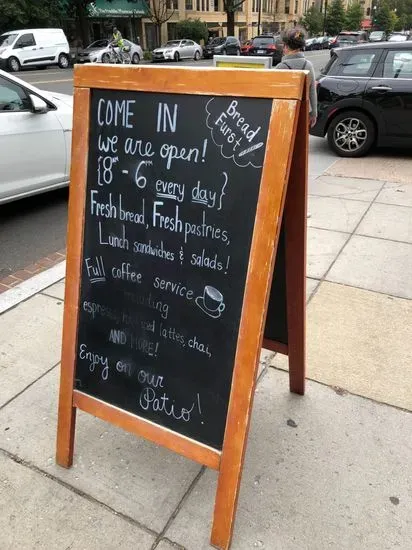 COME IN
we are open!
{8AM - 6PM every day}
Bread
Furst
Fresh bread, Fresh pastries,
Lunch sandwiches & salads!
Full coffee service
including
lattes, chai,
AND MORE!
Enjoy on our
Patio!